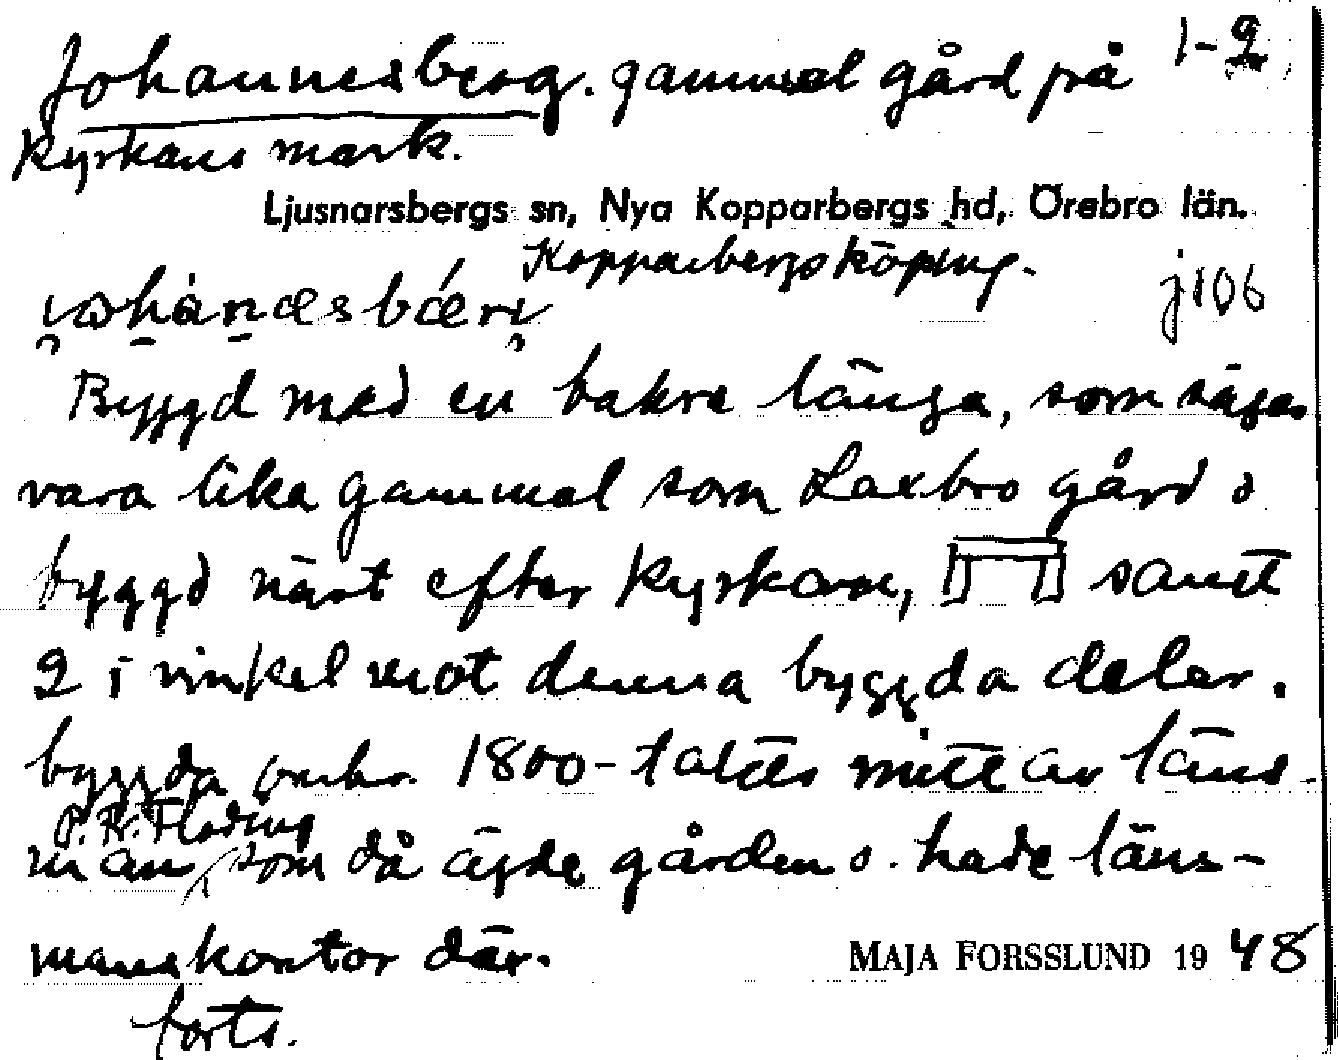 Johannesberg. gammal gård på 1-2
kyrkans mark.
Ljusnarsbergs sn, Nya Kopparbergs hd, Örebro län.
Kopparbergs köping.
j106
Byggd med en bakre länga, som säges
vara lika gammal som Laxbro gård o
byggd näst efter kyrkan, samt
2 i vinkel mot denna byggda delar.
byggda omkr. 1800-talets mitt av läns-
P. Fr. Floding
man, som då ägde gården o. hade läns-
manskontor där.
MAJA FORSSLUND 1948
forts.